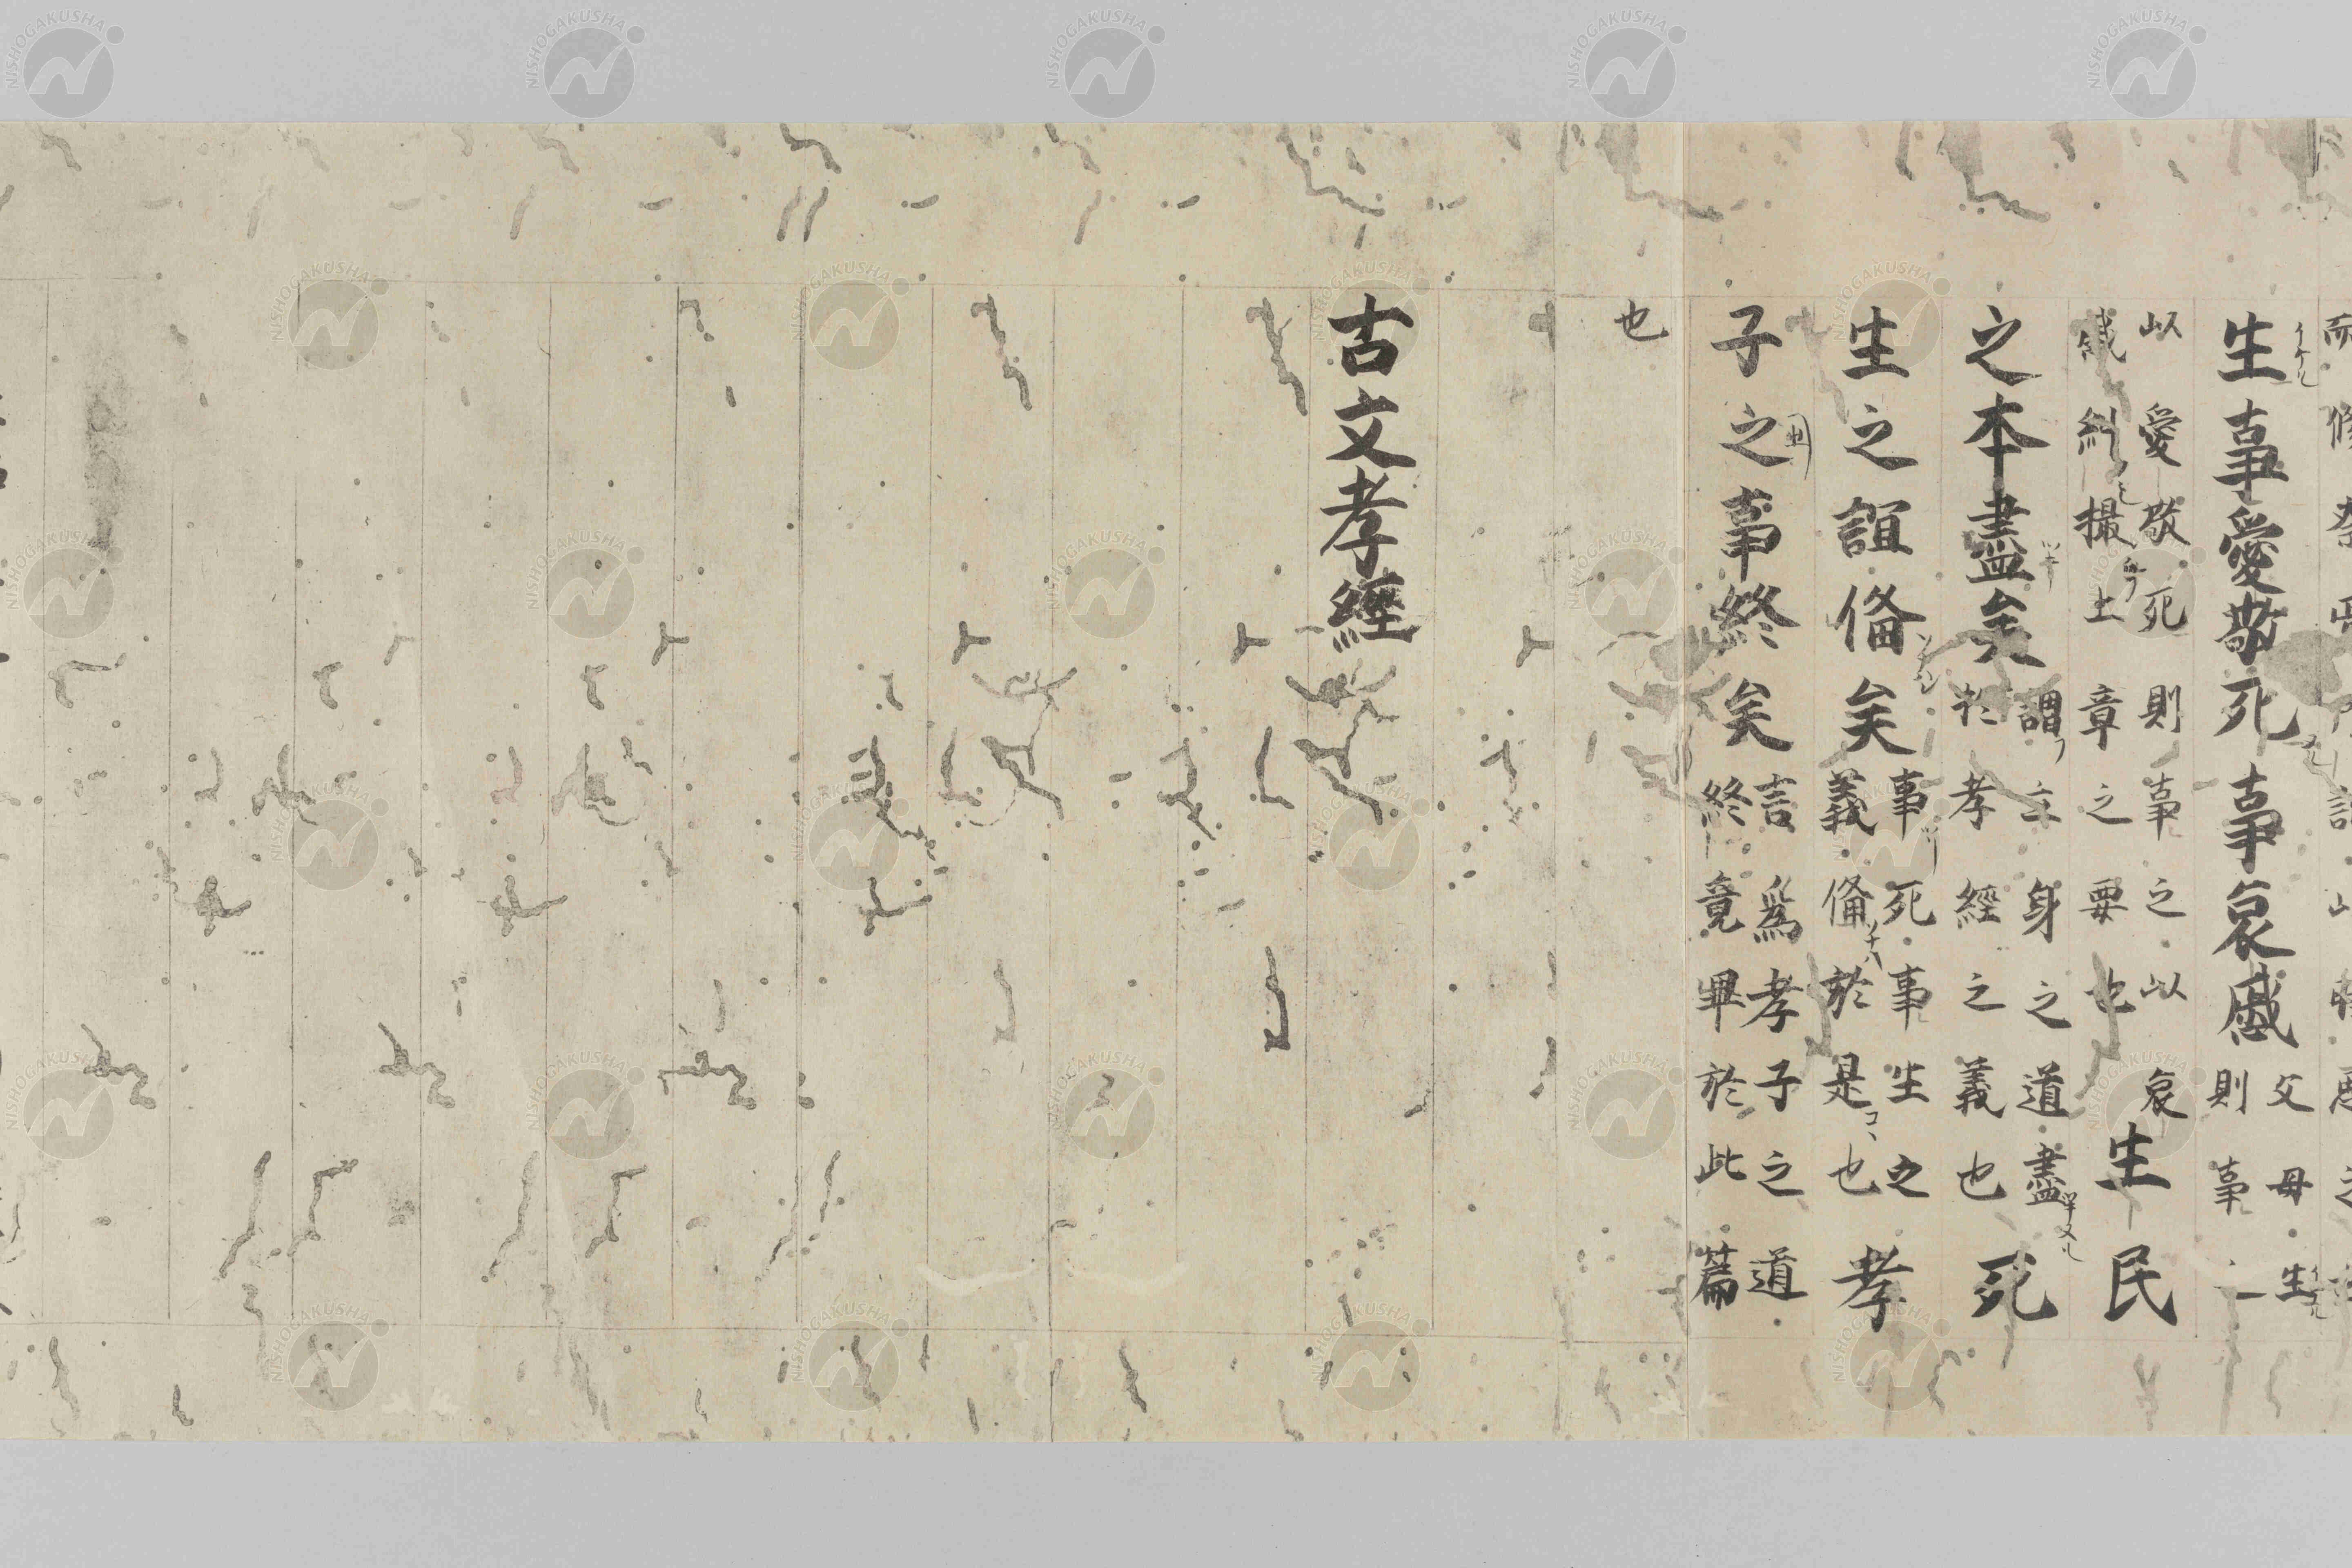 生事愛敬死事哀慼父母生
則事之
以愛敬死則事之以哀
慼糾撮此章之要也生民
之本盡矣謂立身之道盡
於孝經之義也死
生之誼俻矣事死事生之
義俻於是也孝
子之事終矣言爲孝子之道
終竟畢於此篇
也
古文孝經
NISHOGAKUSHA